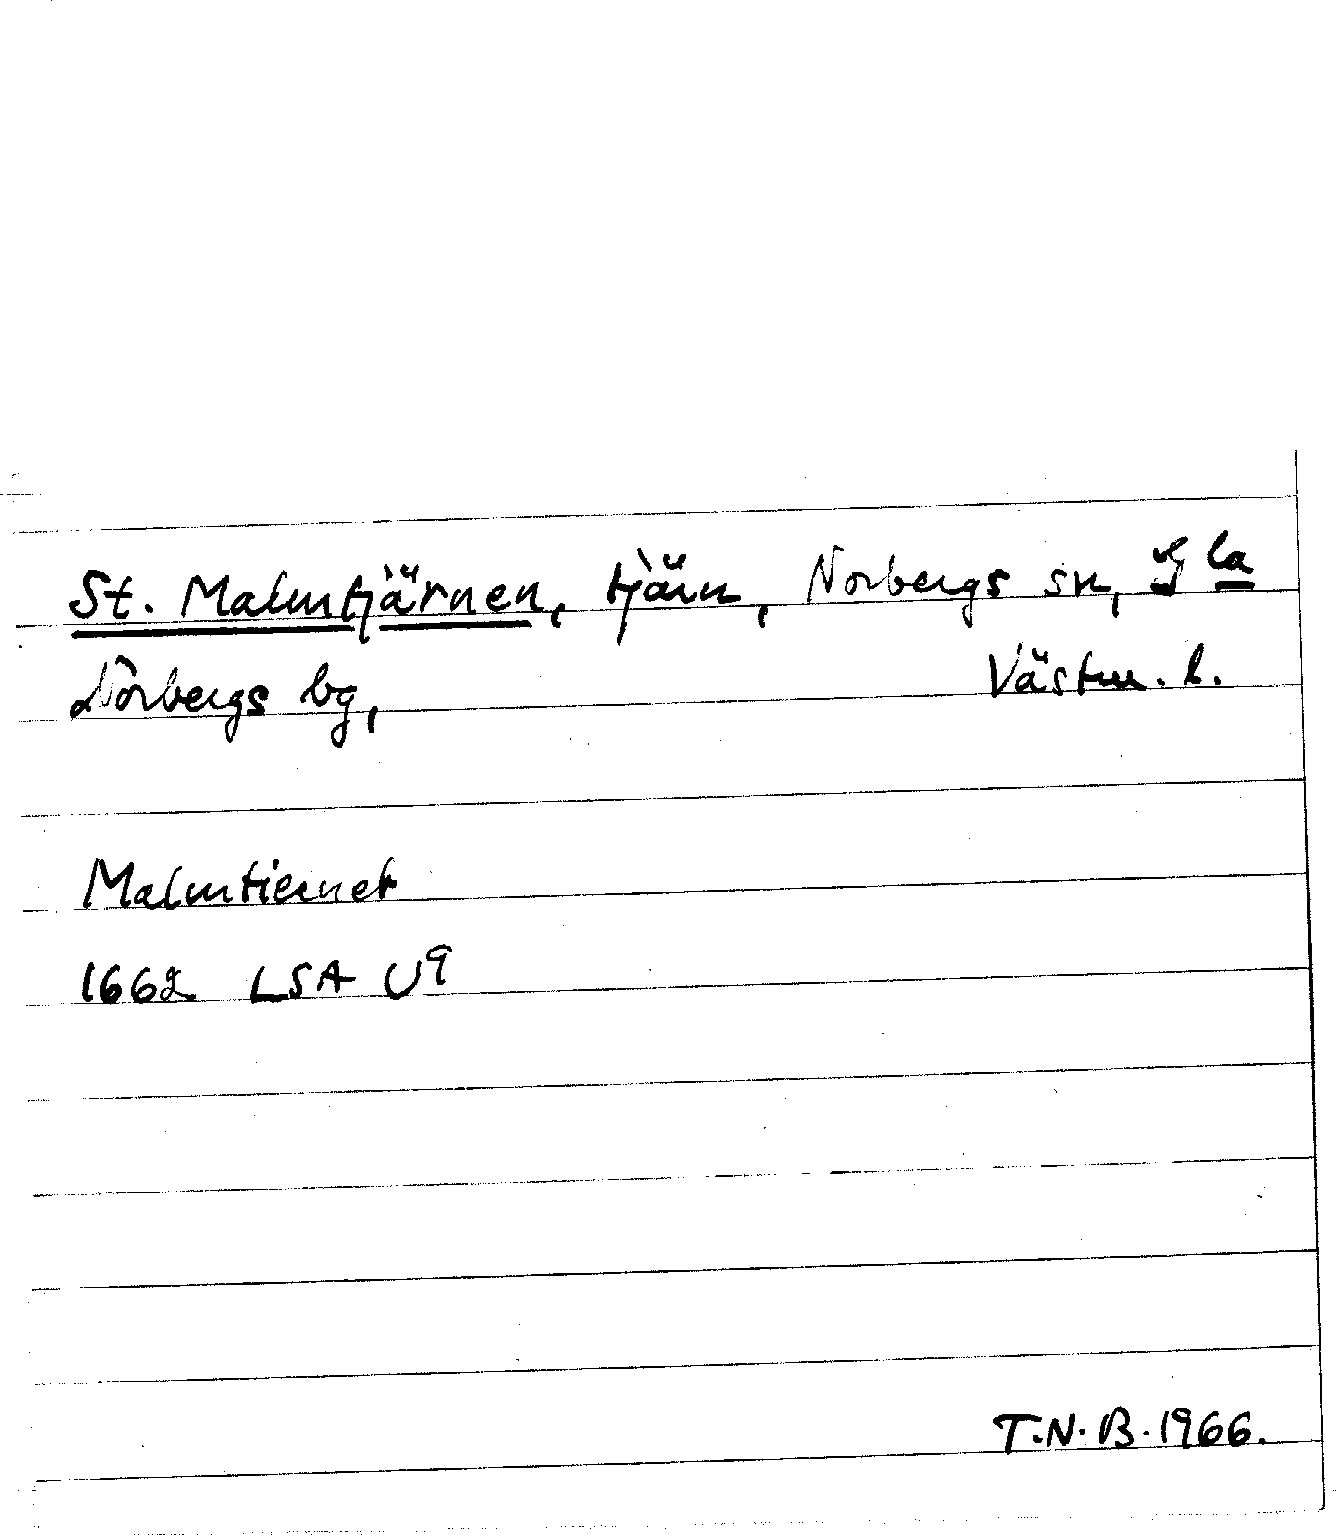 St. Malmtjärnen, tjärn, Norbergs sn, G la
Norbergs bg, Västm. l.
Malmtiernet
1662 LSA U9
T.N.B. 1966.